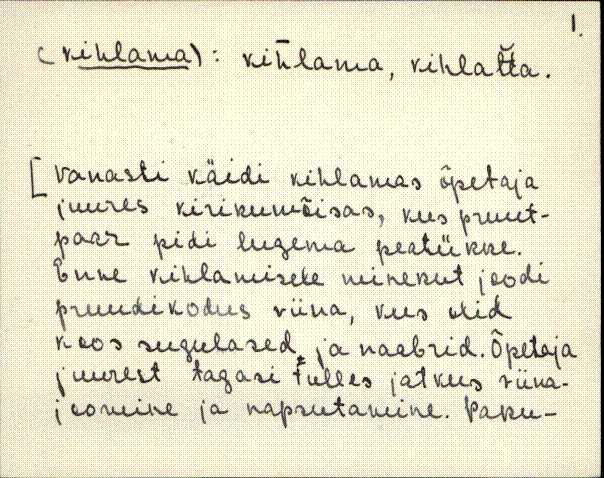 1.
(kihlama): kih̄lama, kihlat̆ta.
[Vanasti käidi kihlamas õpetaja
juures kirikumõisas, kus pruut-
paar pidi lugema peatükke.
Enne kihlamisele minekut joodi
pruudikodus viina, kus olid
koos sugulased ja naabrid. Õpetaja
juurest tagasi tulles jatkus viina-
joomine ja napsutamine. Paku-